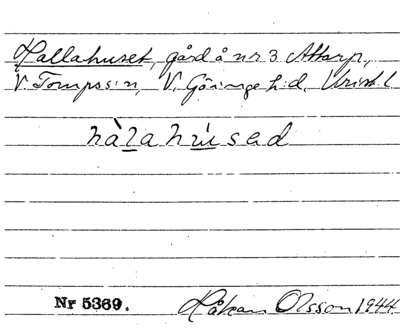 Hallahuset, gård å nr 3 Attarp,
V. Torups sn, V. Göinge hd, Kristl.
hàlahúsed
Nr 5369.
Håkan Olsson 1944.